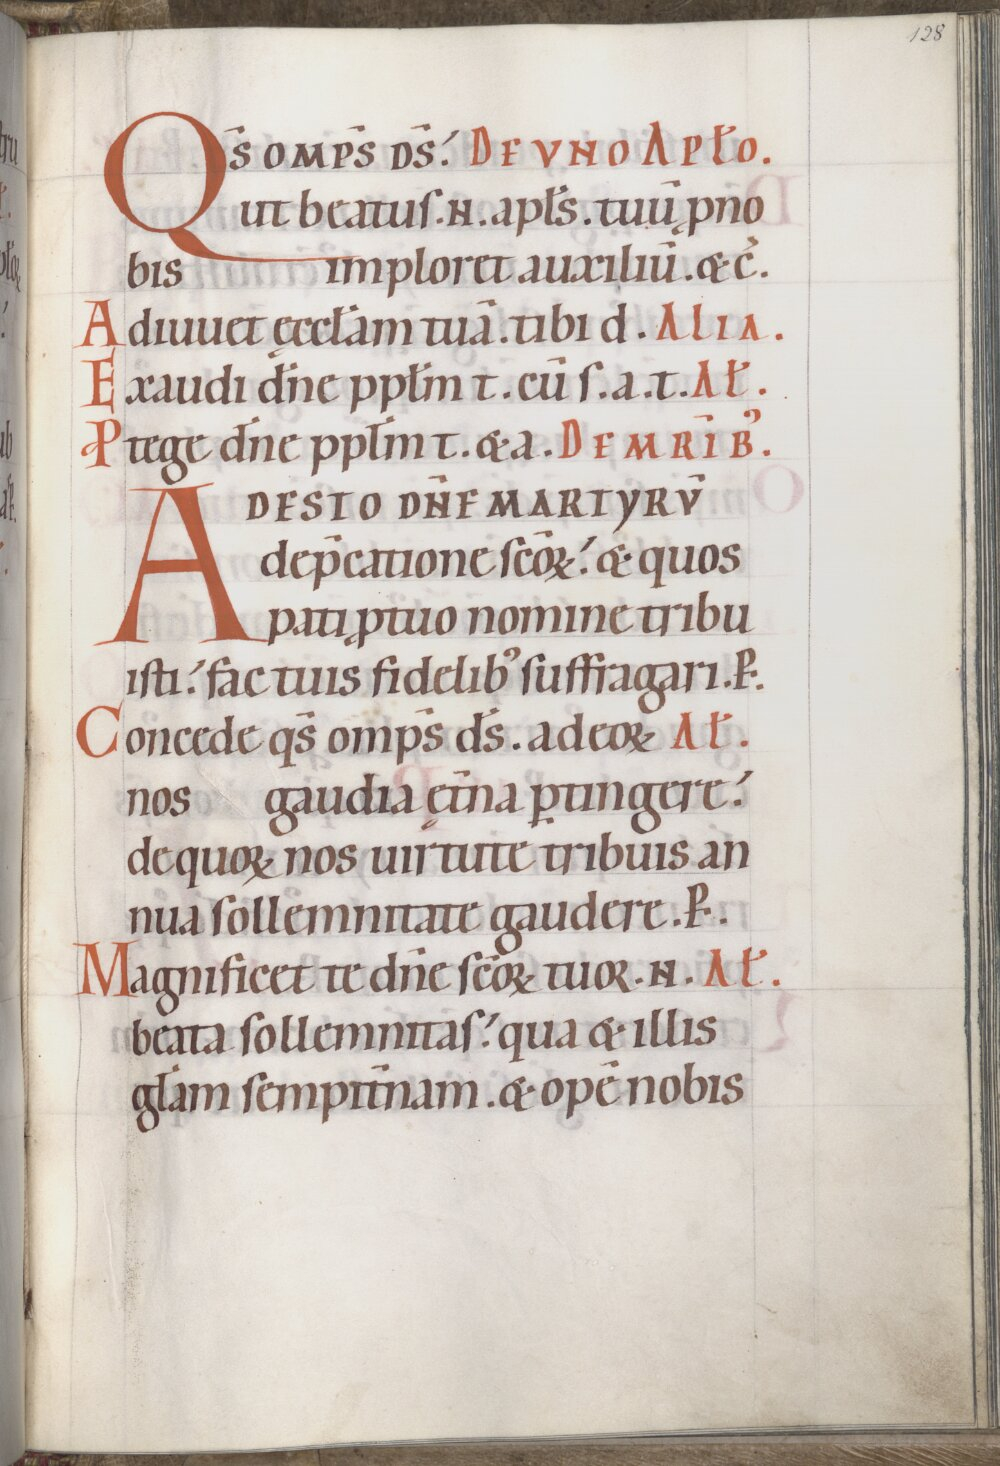 128
Qs̄ omp̄s ds̄. DE VNO APŁO.
ut beatus .N. apłs. tuū p̱ no
bis imploret auxiliū. & c̄.
Adiuuet ęccłam tuā. tibi d. ALIA.
Exaudi dn̄e ppłm t. cū s. a. t. AŁ.
Ptege dn̄e ppłm t. & a. DE MR̄IB᾽.
ADESTO DN̄E MARTYRV̄
dep̄catione sc̄oꝝ. & quos
pati ꝓ tuo nomine tribu
isti. fac tuis fidelib᾽ suffragari. P.
Concede qs̄ omp̄s ds̄. ad eoꝝ AŁ.
nos gaudia ęt̄na ꝑtingere.
de quoꝝ nos uirtute tribuis an
nua sollemnitate gaudere. P.
Magnificet te dn̄e sc̄oꝝ tuoR .N. AŁ.
beata sollemnitas. qua & illis
głam sempit̄nam. & opē nobis